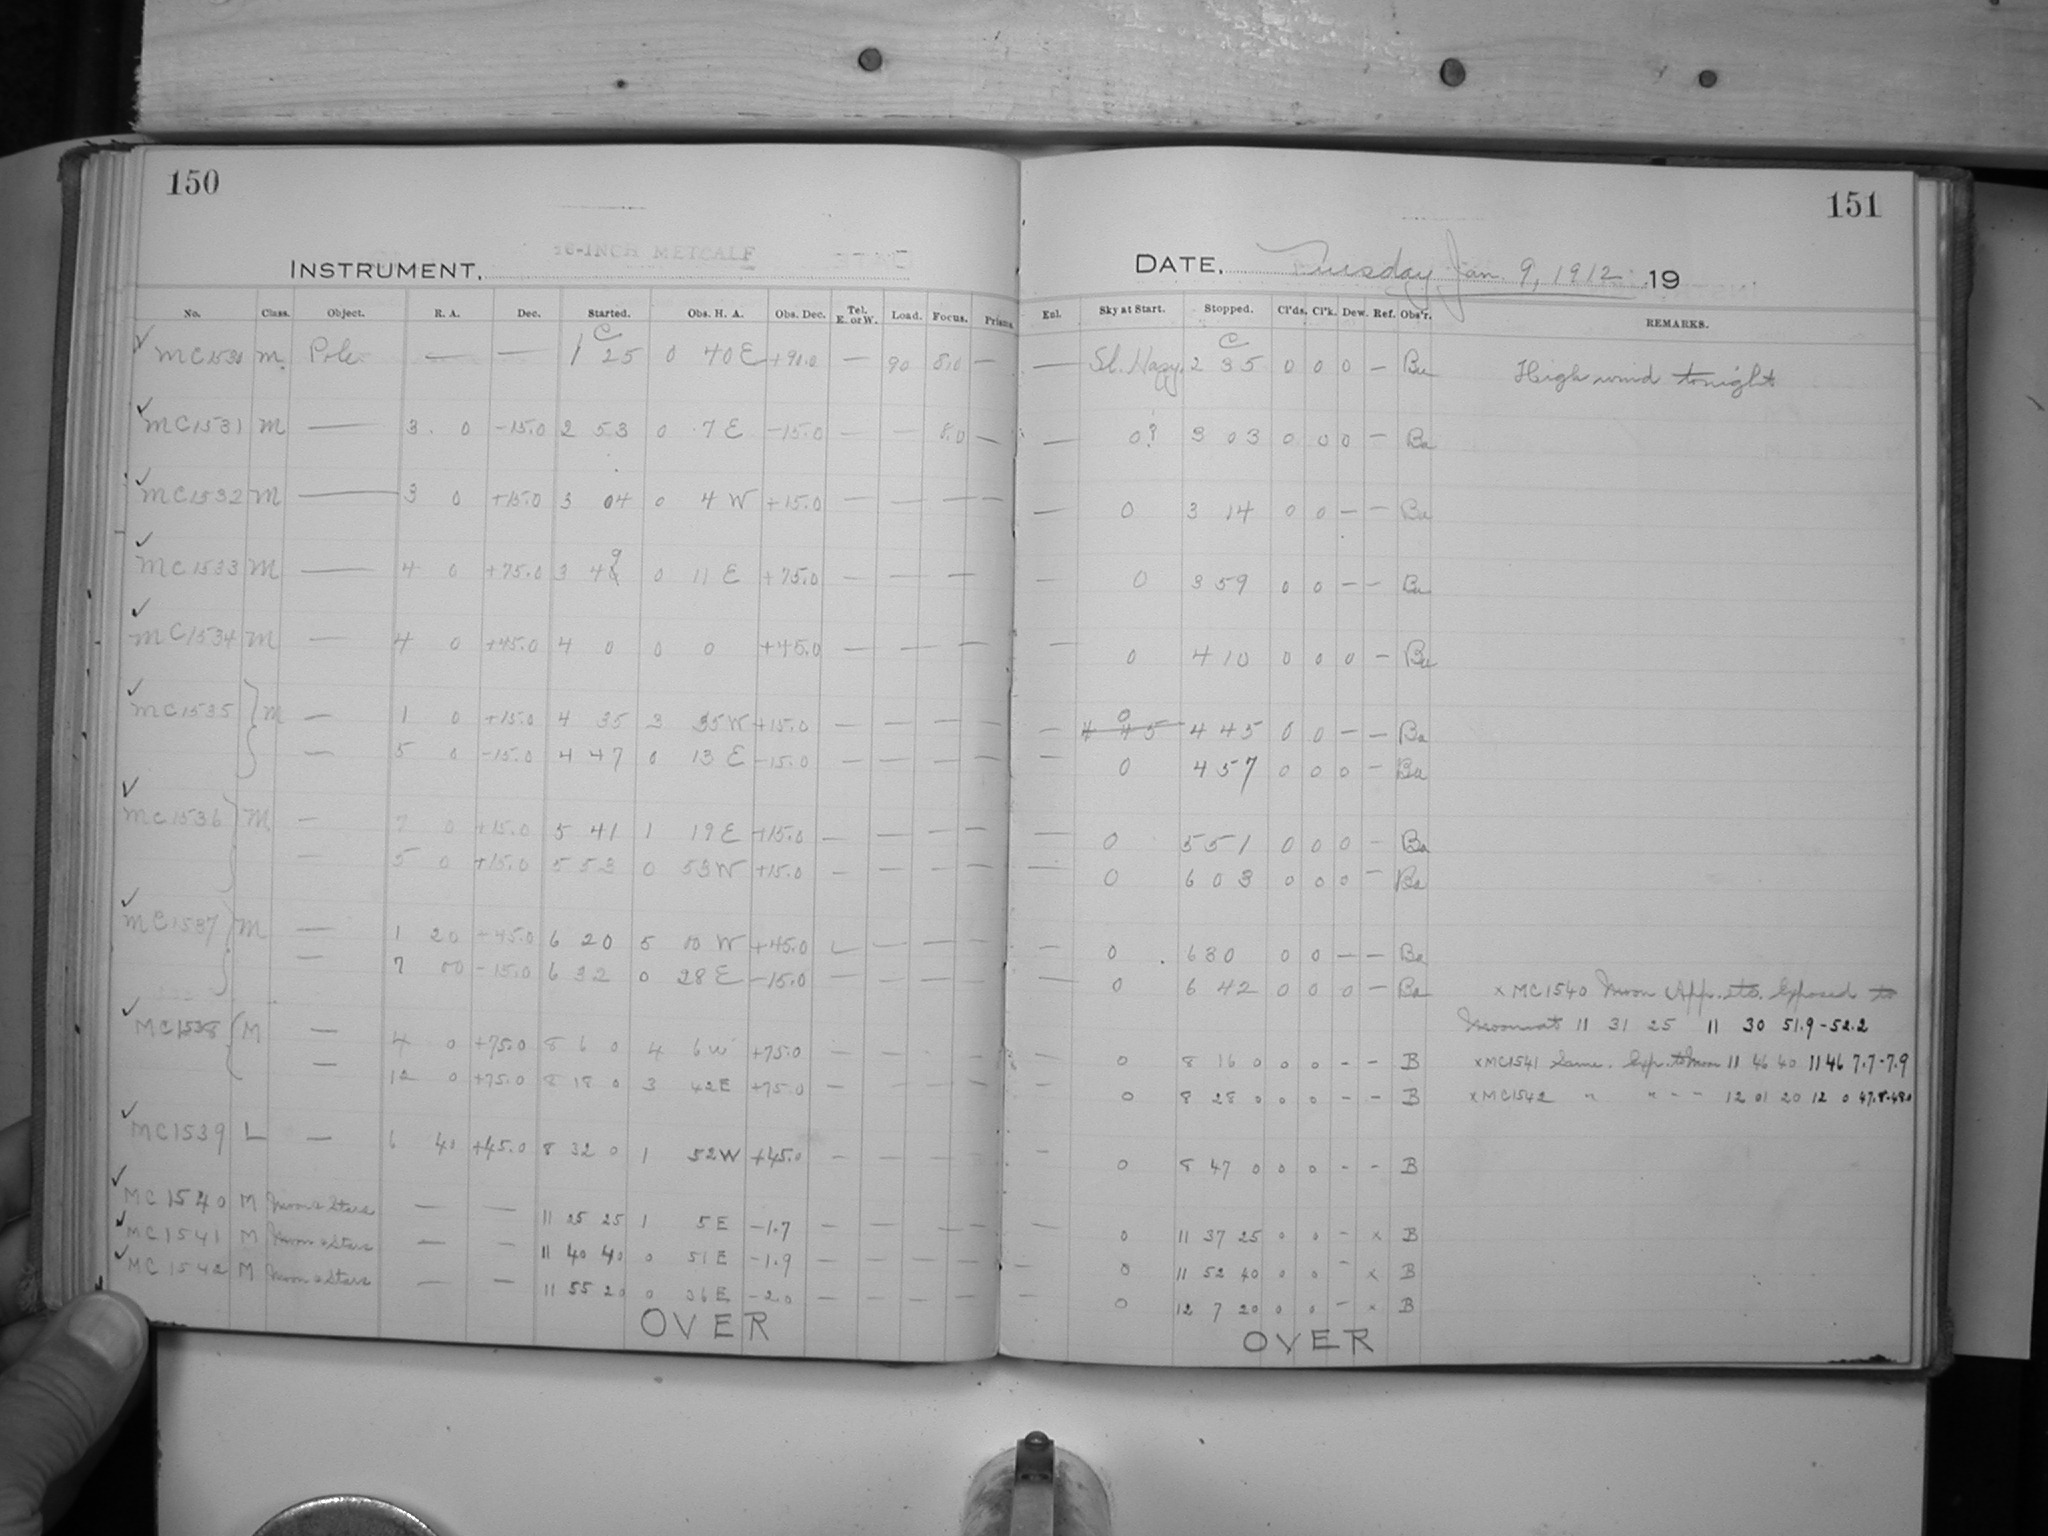 150
151
16-INCH METCALF
INSTRUMENT.
DATE. Tuesday Jan. 9, 1912 19
No. Class. Object. R. A. Dec. Started. Obs. H. A. Obs. Dec. Tel. E. or W. Load. Focus. Prisms. Enl. Sky at Start. Stopped. Cl'ds. Cl'k. Dew. Ref. Obs'r. REMARKS.
✓ MC1530 M Pole — — C 1 25 0 40 E +90.0 — 90 8.0 — — Sl. Hazy C 2 35 0 0 0 — Bu High wind tonight
✓ MC1531 M — 3 0 -15.0 2 53 0 7 E -15.0 — — 8.0 — — 0? 3 03 0 0 0 — Bu
✓ MC1532 M — 3 0 +15.0 3 04 0 4 W +15.0 — — — — — 0 3 14 0 0 — — Bu
✓ MC1533 M — 4 0 +75.0 3 49 0 11 E +75.0 — — — — 0 3 59 0 0 — — Bu
✓ MC1534 M — 4 0 +45.0 4 0 0 0 +45.0 — — — — 0 4 10 0 0 0 — Bu
✓ MC1535 M — 1 0 +15.0 4 35 3 35 W +15.0 — — — — — 4 45 0 4 45 0 0 — — Bu
— 5 0 -15.0 4 47 0 13 E -15.0 — — — — — 0 4 57 0 0 0 — Bu
✓ MC1536 M — 7 0 +15.0 5 41 1 19 E +15.0 — — — — — 0 5 51 0 0 0 — Bu
— 5 0 +15.0 5 53 0 53 W +15.0 — — — — — 0 6 03 0 0 0 — Bu
✓ MC1537 M — 1 20 +45.0 6 20 5 00 W +45.0 — — — — — 0 6 30 0 0 — — Bu
— 7 00 -15.0 6 32 0 28 E -15.0 — — — — — 0 6 42 0 0 0 — Bu × MC1540 Moon App. etc. Exposed to
Moon at 11 31 25 11 30 51.9-52.2
✓ MC1538 M — 4 0 +75.0 8 6 0 4 6 W +75.0 — — — — — 0 8 16 0 0 0 — — B × MC1541 Same. Exp. to Moon 11 46 40 11 46 7.7-7.9
— 12 0 +75.0 8 18 0 3 42 E +75.0 — — — — — 0 8 28 0 0 0 — — B × MC1542 " " — — 12 01 20 12 0 47.8-48.0
✓ MC1539 L — 6 40 +45.0 8 32 0 1 52 W +45.0 — — — — — 0 8 47 0 0 0 — — B
✓ MC1540 M Moon & Stars — — 11 25 25 1 5 E -1.7 — — — — — 0 11 37 25 0 0 — × B
✓ MC1541 M Moon & Stars — — 11 40 40 0 51 E -1.9 — — — — — 0 11 52 40 0 0 — × B
✓ MC1542 M Moon & Stars — — 11 55 20 0 36 E -2.0 — — — — — 0 12 7 20 0 0 — × B
OVER
OVER